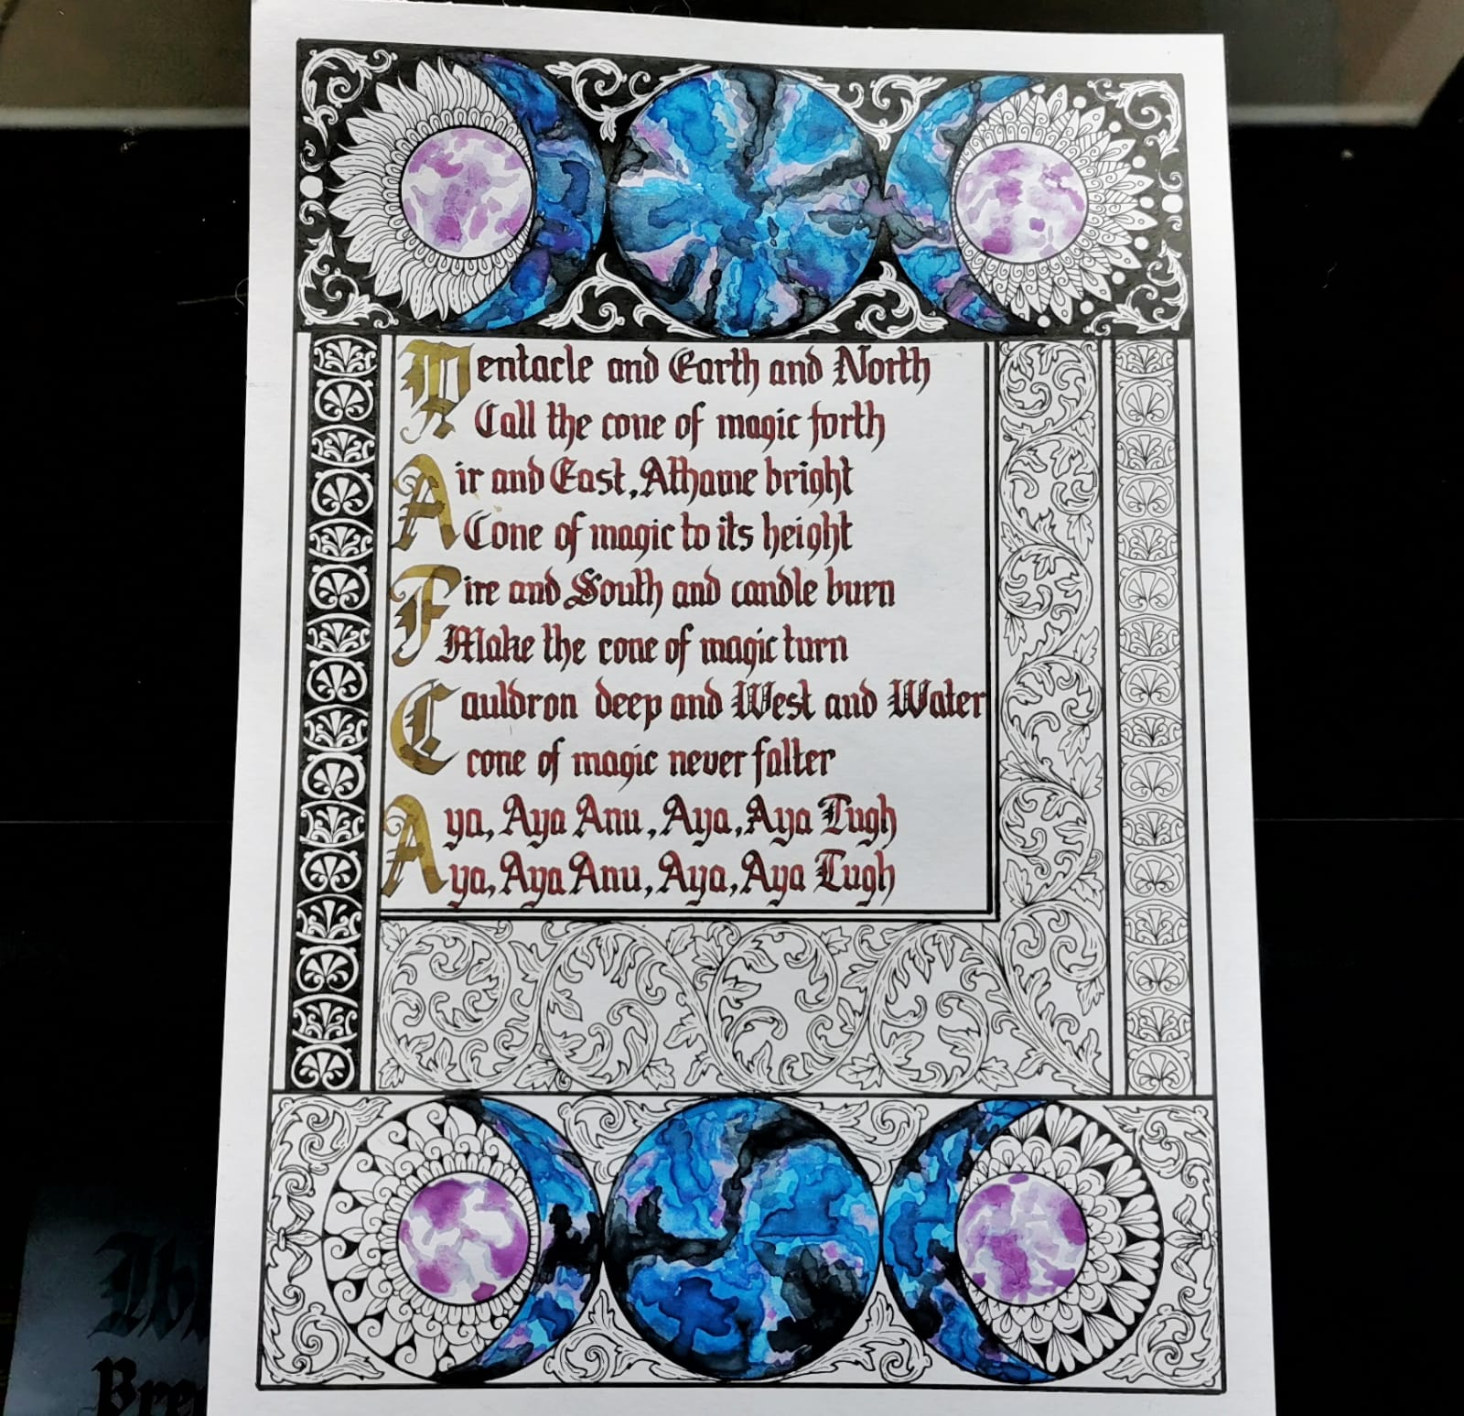 Pentacle and Earth and North
Call the cone of magic forth
Air and East, Athame bright
Cone of magic to its height
Fire and South and candle burn
Make the cone of magic turn
Cauldron deep and West and Water
cone of magic never falter
Aya, Aya Anu, Aya, Aya Tugh
Aya, Aya Anu, Aya, Aya Tugh